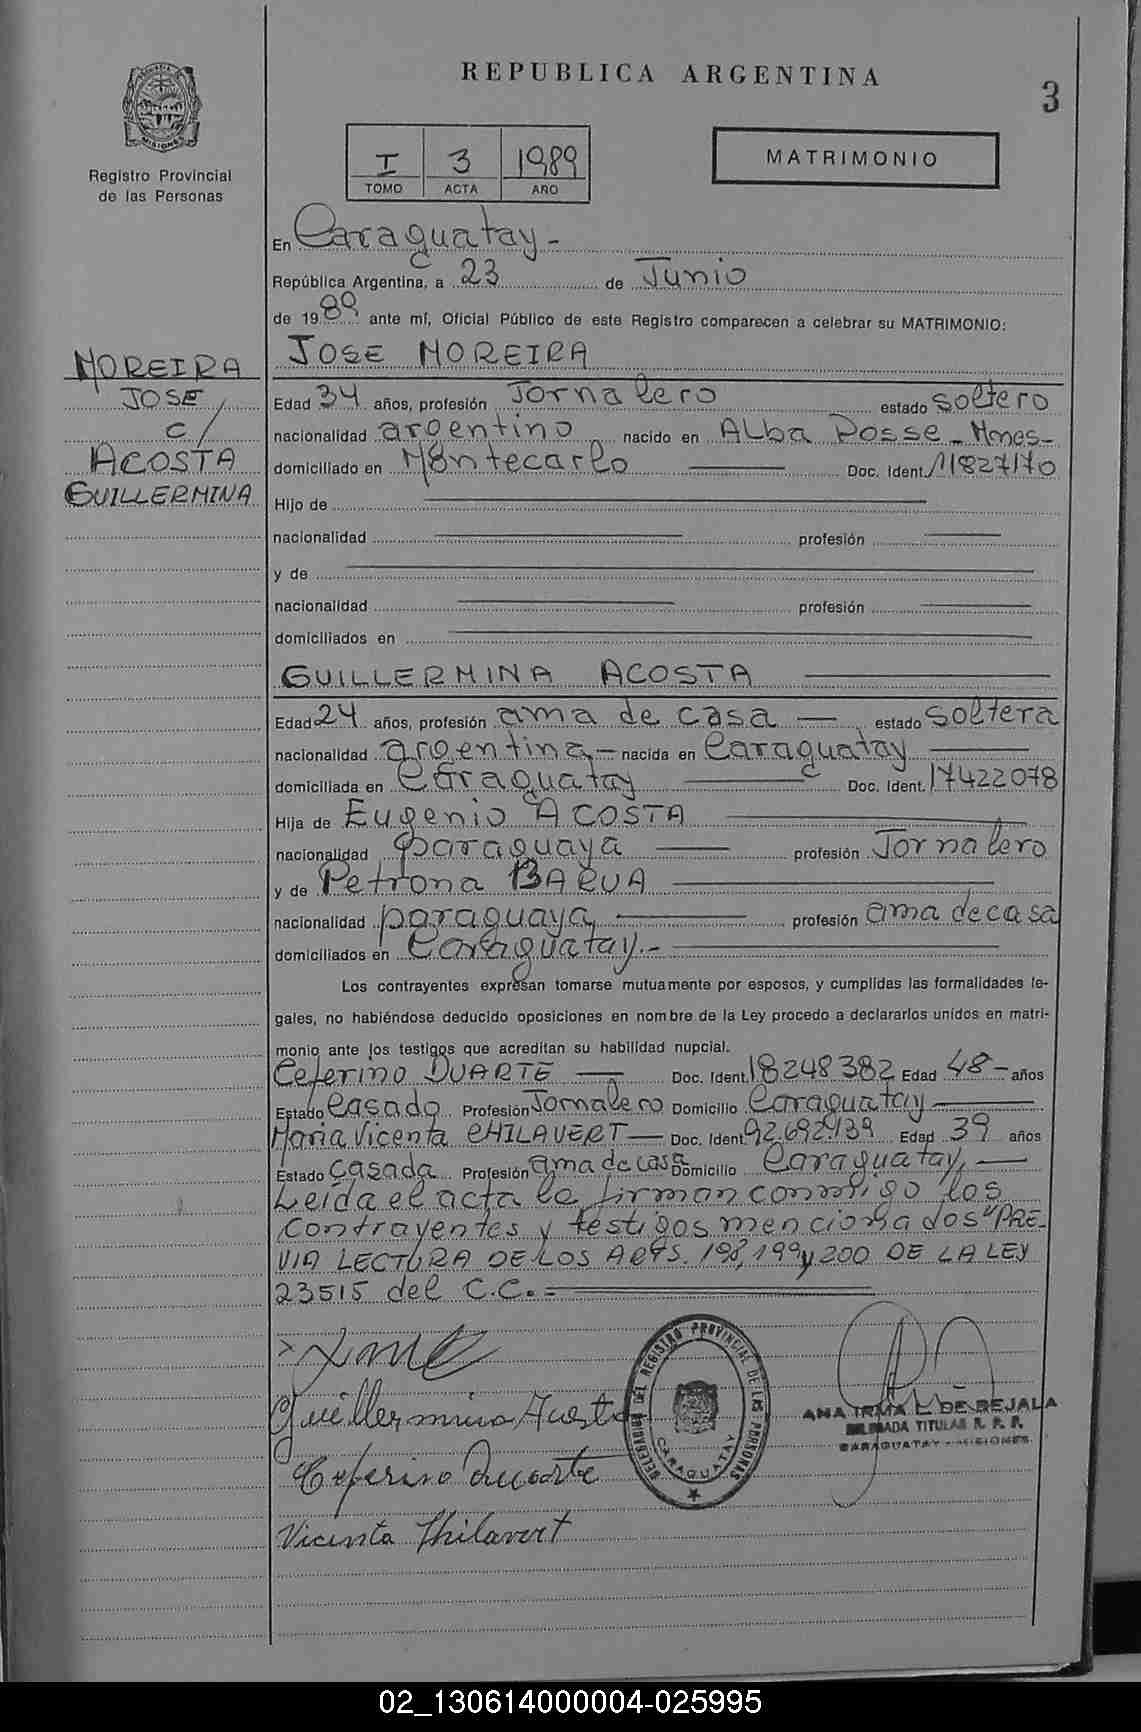 REPUBLICA ARGENTINA
3
MISIONES
Registro Provincial
de las Personas
I 3 1989
TOMO ACTA AÑO
MATRIMONIO
En Caraguatay -
República Argentina, a 23 de Junio
de 1989 ante mí, Oficial Público de este Registro comparecen a celebrar su MATRIMONIO:
MOREIRA
JOSE
c/
ACOSTA
GUILLERMINA
JOSE MOREIRA
Edad 34 años, profesión Jornalero estado soltero
nacionalidad argentino nacido en ALba Posse - Mnes-
domiciliado en Montecarlo Doc. Ident. 11827170
Hijo de
nacionalidad profesión
y de
nacionalidad profesión
domiciliados en
GUILLERMINA ACOSTA
Edad 24 años, profesión ama de casa estado soltera
nacionalidad argentina - nacida en Caraguatay
domiciliada en Caraguatay Doc. Ident. 17422078
Hija de Eugenio ACOSTA
nacionalidad paraguaya profesión Jornalero
y de Petrona BARUA
nacionalidad paraguaya profesión ama de casa
domiciliados en Caraguatay.-
Los contrayentes expresan tomarse mutuamente por esposos, y cumplidas las formalidades le-
gales, no habiéndose deducido oposiciones en nombre de la Ley procedo a declararlos unidos en matri-
monio ante los testigos que acreditan su habilidad nupcial.
Ceferino DUARTE Doc. Ident. 18248382 Edad 48- años
Estado Casado Profesión Jornalero Domicilio Caraguatay
Maria Vicenta CHILAVERT Doc. Ident. 92.692.139 Edad 39 años
Estado casada Profesión ama de casa Domicilio Caraguatay,
Leida el acta la firman conmigo los
contrayentes y testigos mencionados "PRE-
VIA LECTURA DE LOS ARTS. 198, 199 y 200 DE LA LEY
23515 del C.C. =
Guillermina Acosta
Ceferino Duarte
Vicenta Chilavert
DELEGACION DEL REGISTRO PROVINCIAL DE LAS PERSONAS
CARAGUATAY
ANA IRMA L. DE BEJALA
DELEGADA TITULAR R. P. P.
CARAGUATAY - MISIONES
02_130614000004-025995